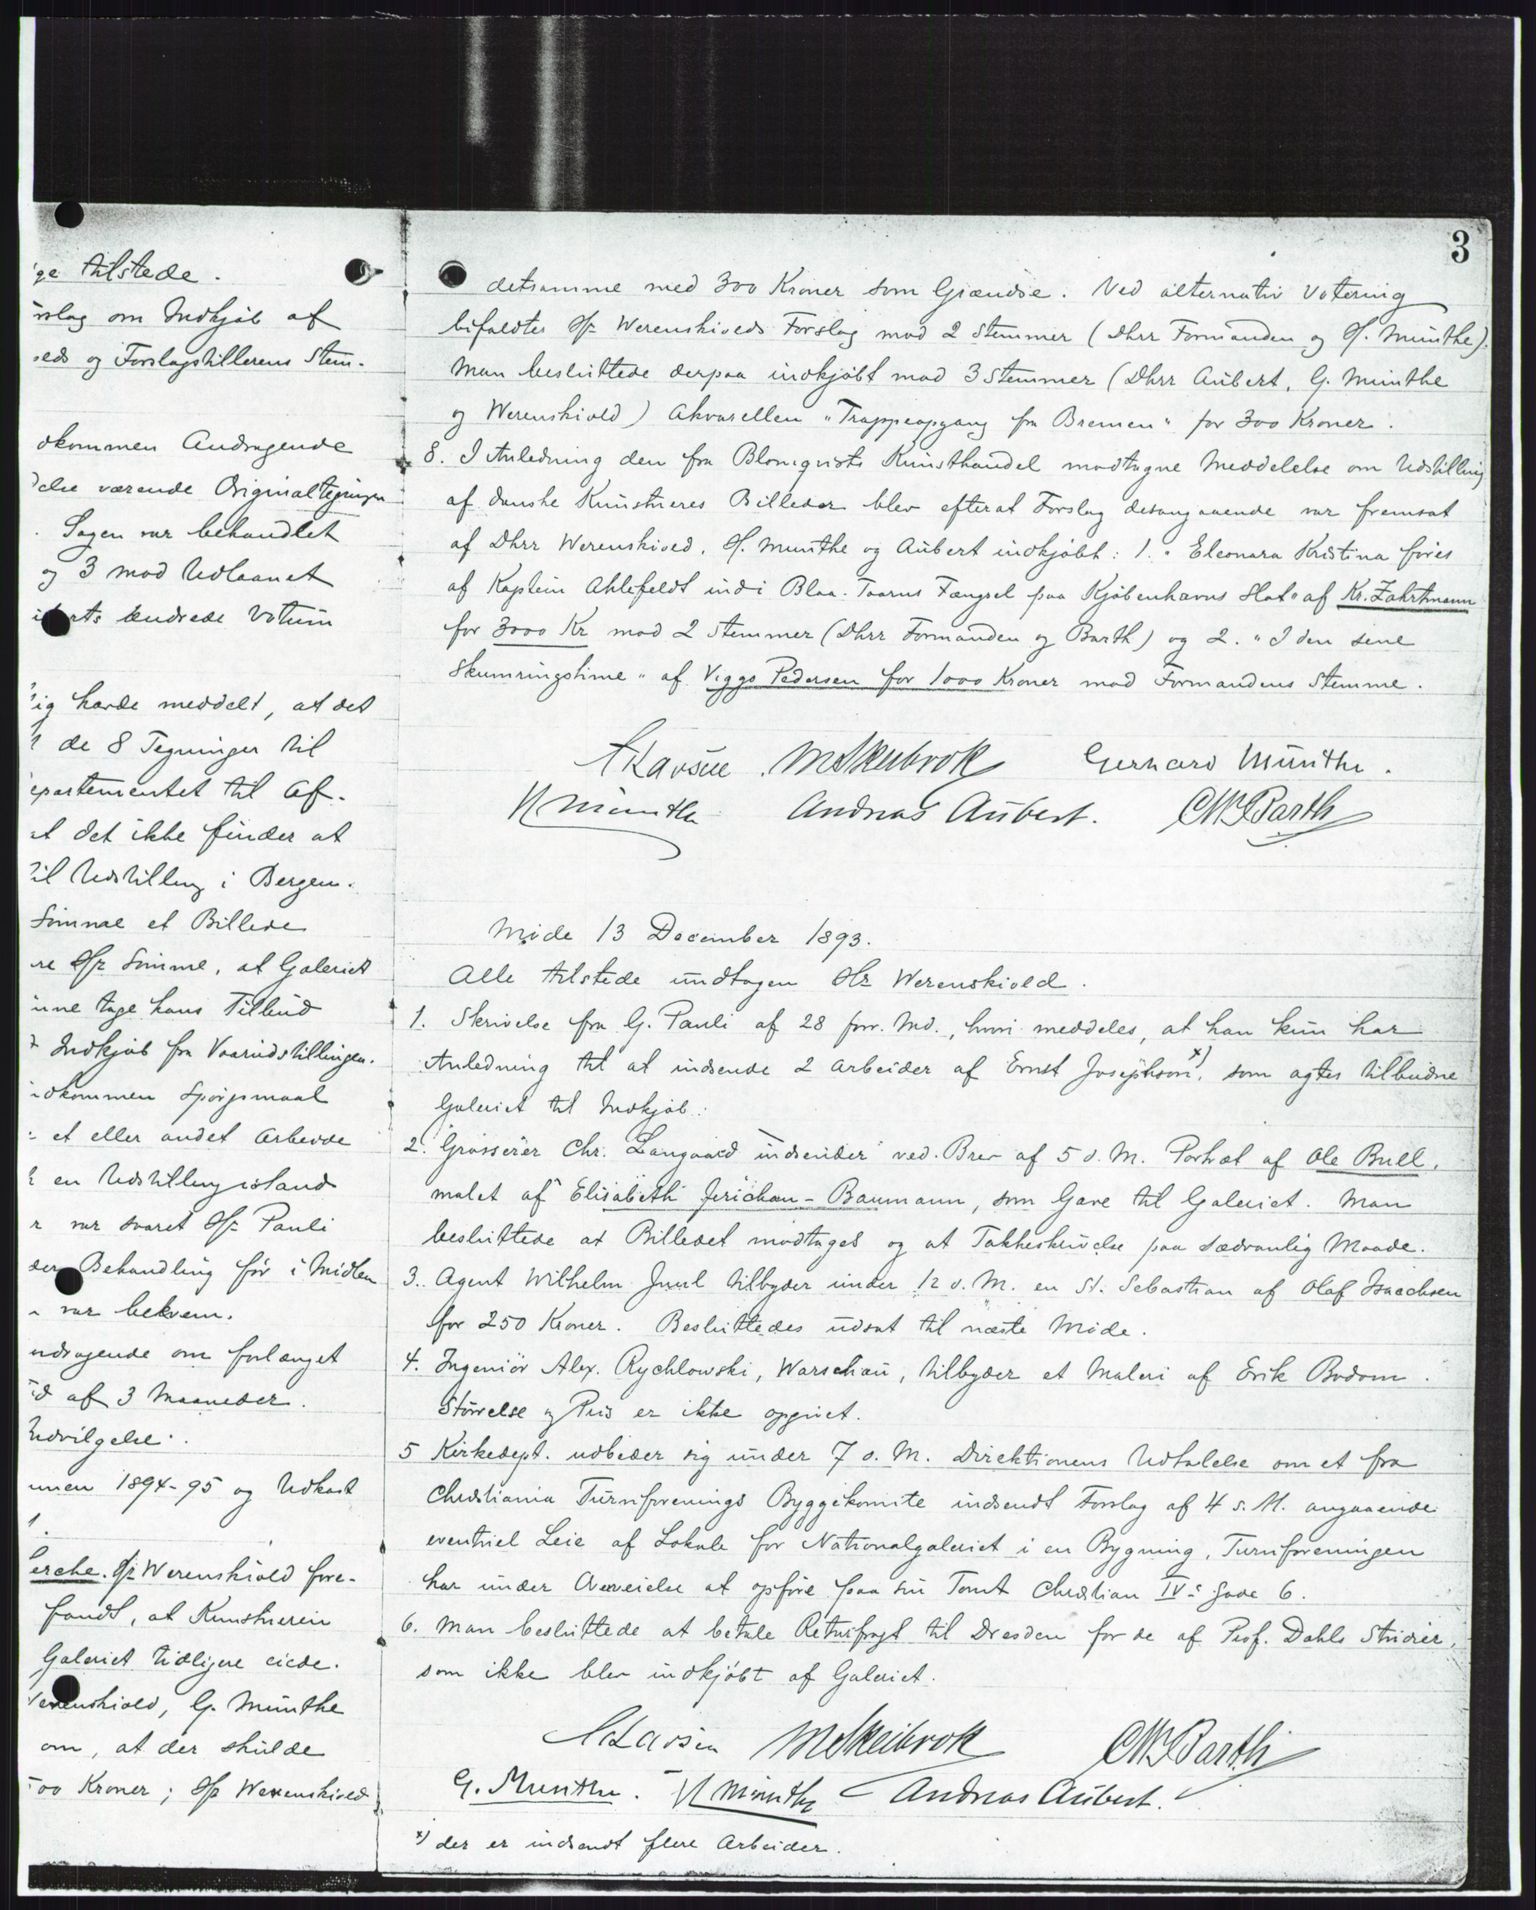 tilstede.
om Indkjöb af
og Forslagstillerens Stem-
Andragende
værende Originaltegninger
. Sagen var behandlet
og 3 mod Udlaanet
ændrede Votum
havde meddelt, at det
de 8 Tegninger til
til Af-
det ikke finder at
Udstilling i Bergen.
Sinnae et Billede
Hr Simme, at Galeriet
tage hans Tilbud
Indkjøb fra Vaarudstillingen.
Spørgsmaal
et eller andet Arbeide
en Udstilling istand
var svaret Hr Pauli
Behandling før i Midten
var bekvem.
om forlænget
af 3 Maaneder.
1894-95 og Udkast
Hr Werenskiold fore-
fandt, at Kunstnerin
Galeriet tidligere eiede.
G. Munthe
om, at der skulde
Kroner; Hr Werenskiold
3
detsamme med 300 Kroner som Grændse. Ved alternativ Votering
bifaldtes Hr Werenskiolds Forslag mod 2 Stemmer (Dhrr Formanden og H. Munthe).
Man besluttede derpaa indkjöbt mod 3 Stemmer (Dhrr Aubert, G. Munthe
og Werenskiold) Akvarellen "Trappeopgang fra Bremen" for 300 Kroner.
8. I Anledning den fra Blomqvists Kunsthandel modtagne Meddelelse om Udstilling
af danske Kunstneres Billeder blev efterat Forslag desangaaende var fremsat
af Dhrr Werenskiold, H. Munthe og Aubert indkjöbt: 1. "Eleonora Kristina føres
af Kaptein Ahlefeldt ind i Blaa-Taarns Fængsel paa Kjøbenhavns Slot" af Kr. Zahrtmann
for 3000 Kr mod 2 Stemmer (Dhrr Formanden og Barth) og 2. "I den sene
Skumringstime" af Viggo Pedersen for 1000 Kroner mod Formandens Stemme.
MSkeibrok Gerhard Munthe.
H Munthe Andreas Aubert. CWBarth
Møde 13 December 1893.
Alle tilstede undtagen Hr Werenskiold.
1. Skrivelse fra G. Pauli af 28 forr. Md., hvori meddeles, at han kun har
Anledning til at indsende 2 Arbeider af Ernst Josephson x), som agtes tilbudne
Galeriet til Indkjøb.
2. Grosserer Chr. Langaard indsender ved Brev af 5 d. M. Portræt af Ole Bull,
malet af Elisabeth Jerichau-Baumann, som Gave til Galeriet. Man
besluttede at Billedet modtages og at Takkeskrivelse paa sædvanlig Maade.
3. Agent Wilhelm Juul tilbyder under 12 d. M. en St. Sebastian af Olaf Isaachsen
for 250 Kroner. Besluttedes udsat til næste Møde.
4. Ingeniör Alex. Rychlowski, Warschau, tilbyder et Maleri af Erik Bodom.
Størrelse og Pris er ikke opgivet.
5 Kirkedept. udbeder sig under 7 d. M. Direktionens Udtalelse om et fra
Christiania Turnforenings Byggekomite indsendt Forslag af 4 s. M. angaaende
eventuel Leie af Lokale for Nationalgaleriet i en Bygning, Turnforeningen
har under Overveielse at opføre paa sin Tomt Christian IV's Gade 6.
6. Man besluttede at betale Returfragt til Dresden for de af Prof. Dahls Studier,
som ikke blev indkjöbt af Galeriet.
MSkeibrok CWBarth
G. Munthe. H Munthe Andreas Aubert.
x) der er indsendt flere Arbeider.